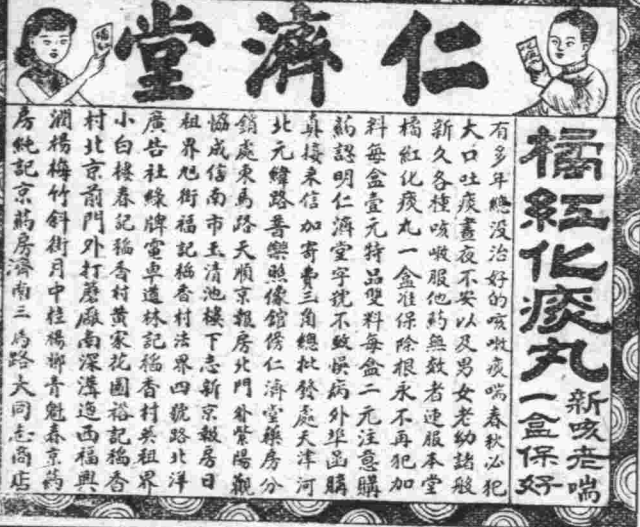 仁濟堂
橘紅化痰丸
新咳老喘
一盒保好
有多年總沒治好的咳嗽痰喘春秋必犯
大口吐痰晝夜不安以及男女老幼諸般
新久各種咳嗽服他药無效者連服本堂
橘紅化痰丸一盒准保除根永不再犯加
料每盒壹元特品雙料每盒二元注意購
药認明仁濟堂字號不致悞病外埠函購
直接來信加寄費三角總批發處天津河
北元緯路普樂照像舘傍仁濟堂藥房分
銷處東馬路天順京報房北門外紫陽觀
協成信南市玉清池樓下志新京報房日
租界旭街福記稻香村法界四號路北洋
廣告社綠牌電車道林記稻香村英租界
小白樓春記稻香村黃家花園裕記稻香
村北京前門外打磨廠南深溝迤西福興
潤楊梅竹斜街月中桂楊柳青魁春京药
房純記京药房濟南三馬路大同志商店